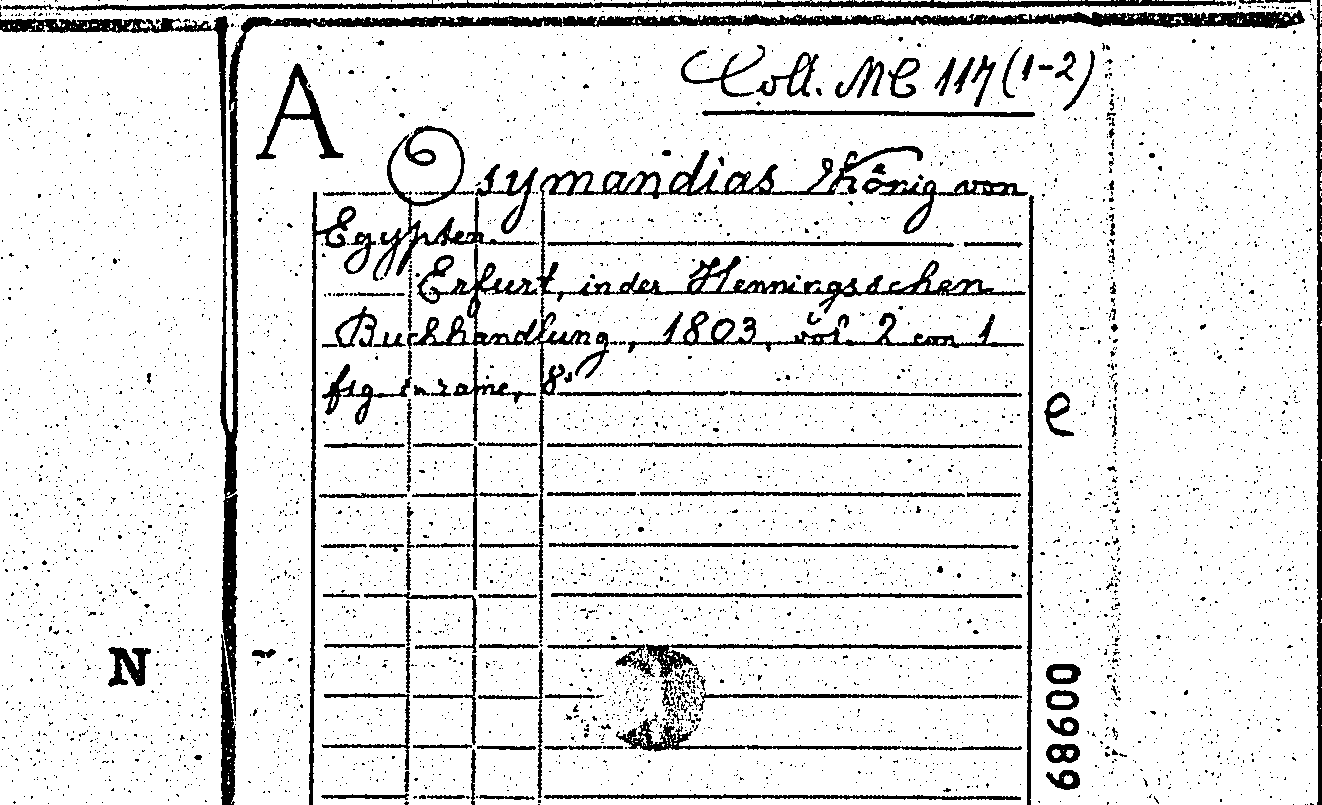 A
Coll. MC 117 (1-2)
Osymandias König von
Egypten.
Erfurt, in der Henningsschen
Buchhandlung, 1803, vol. 2 con 1
fig. in rame, 8°
e
N
68600